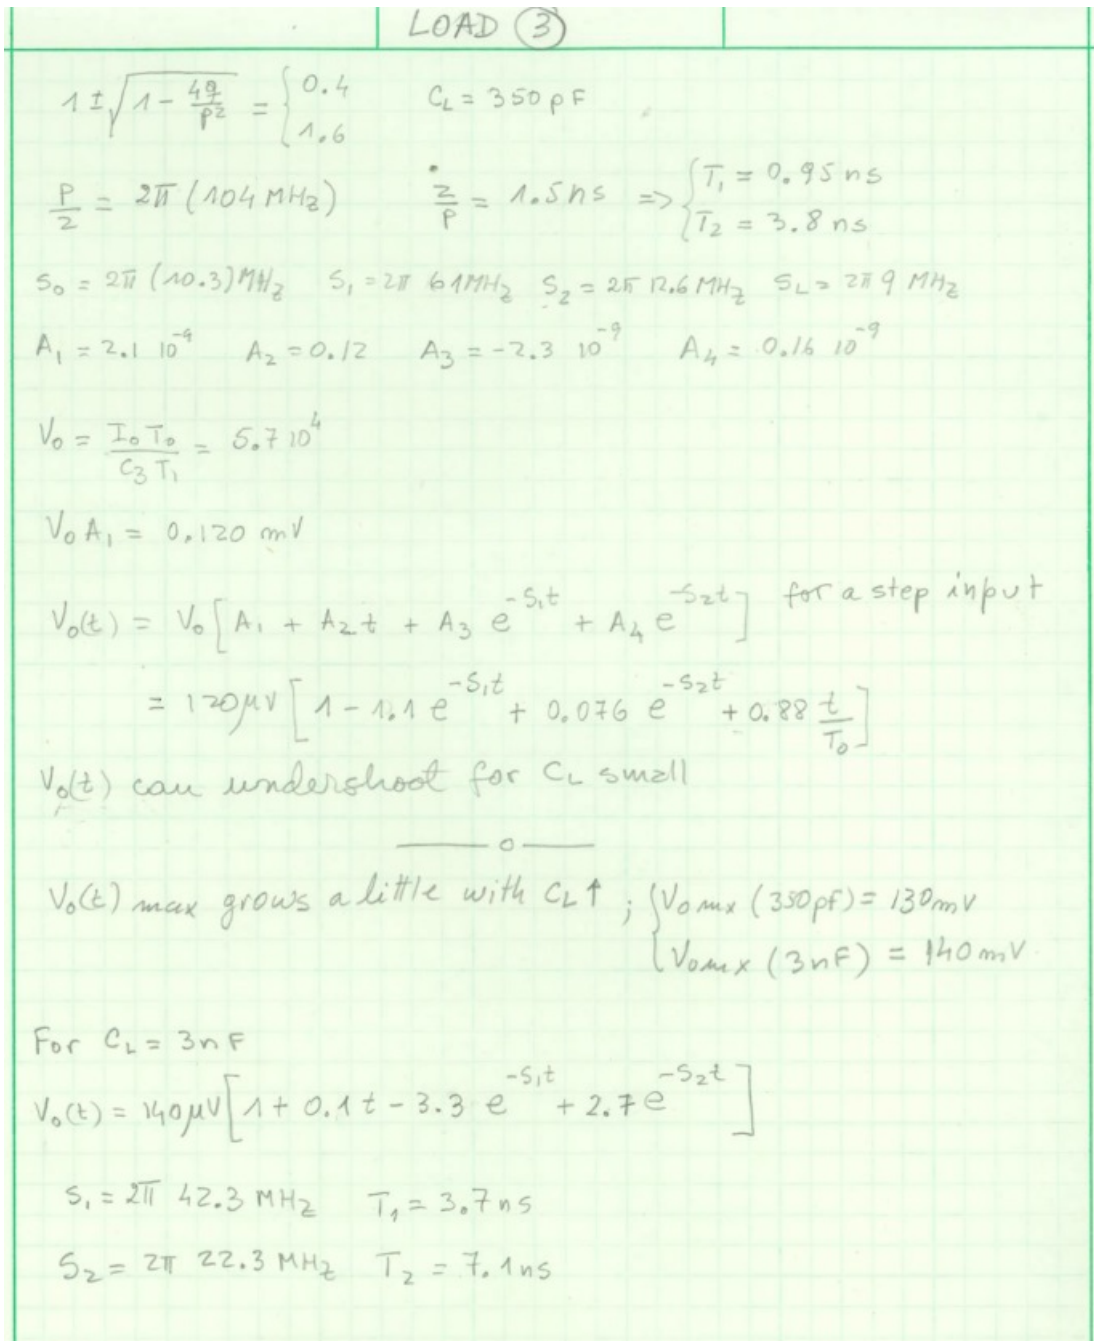 LOAD ③
1 ± √(1 - 4q/p²) = { 0.4 1.6   C_L = 350 pF
p/2 = 2π (104 MHz)   2/p = 1.5 ns => { T₁ = 0.95 ns T₂ = 3.8 ns
S₀ = 2π (10.3) MHz   S₁ = 2π 61 MHz   S₂ = 2π 12.6 MHz   S_L = 2π 9 MHz
A₁ = 2.1 10⁻⁹   A₂ = 0.12   A₃ = -2.3 10⁻⁹   A₄ = 0.16 10⁻⁹
V₀ = I₀ T₀ / C₃ T₁ = 5.7 10⁴
V₀ A₁ = 0.120 mV
V₀(t) = V₀ [A₁ + A₂ t + A₃ e^(-S₁t) + A₄ e^(-S₂t)] for a step input
= 120 μV [1 - 1.1 e^(-S₁t) + 0.076 e^(-S₂t) + 0.88 t/T₀]
V₀(t) can undershoot for C_L small
—— o ——
V₀(t) max grows a little with C_L ↑ ; { V₀mx (350 pf) = 130 mV
V₀mx (3nF) = 140 mV
For C_L = 3nF
V₀(t) = 140 μV [1 + 0.1 t - 3.3 e^(-S₁t) + 2.7 e^(-S₂t)]
S₁ = 2π 42.3 MHz   T₁ = 3.7 ns
S₂ = 2π 22.3 MHz   T₂ = 7.1 ns